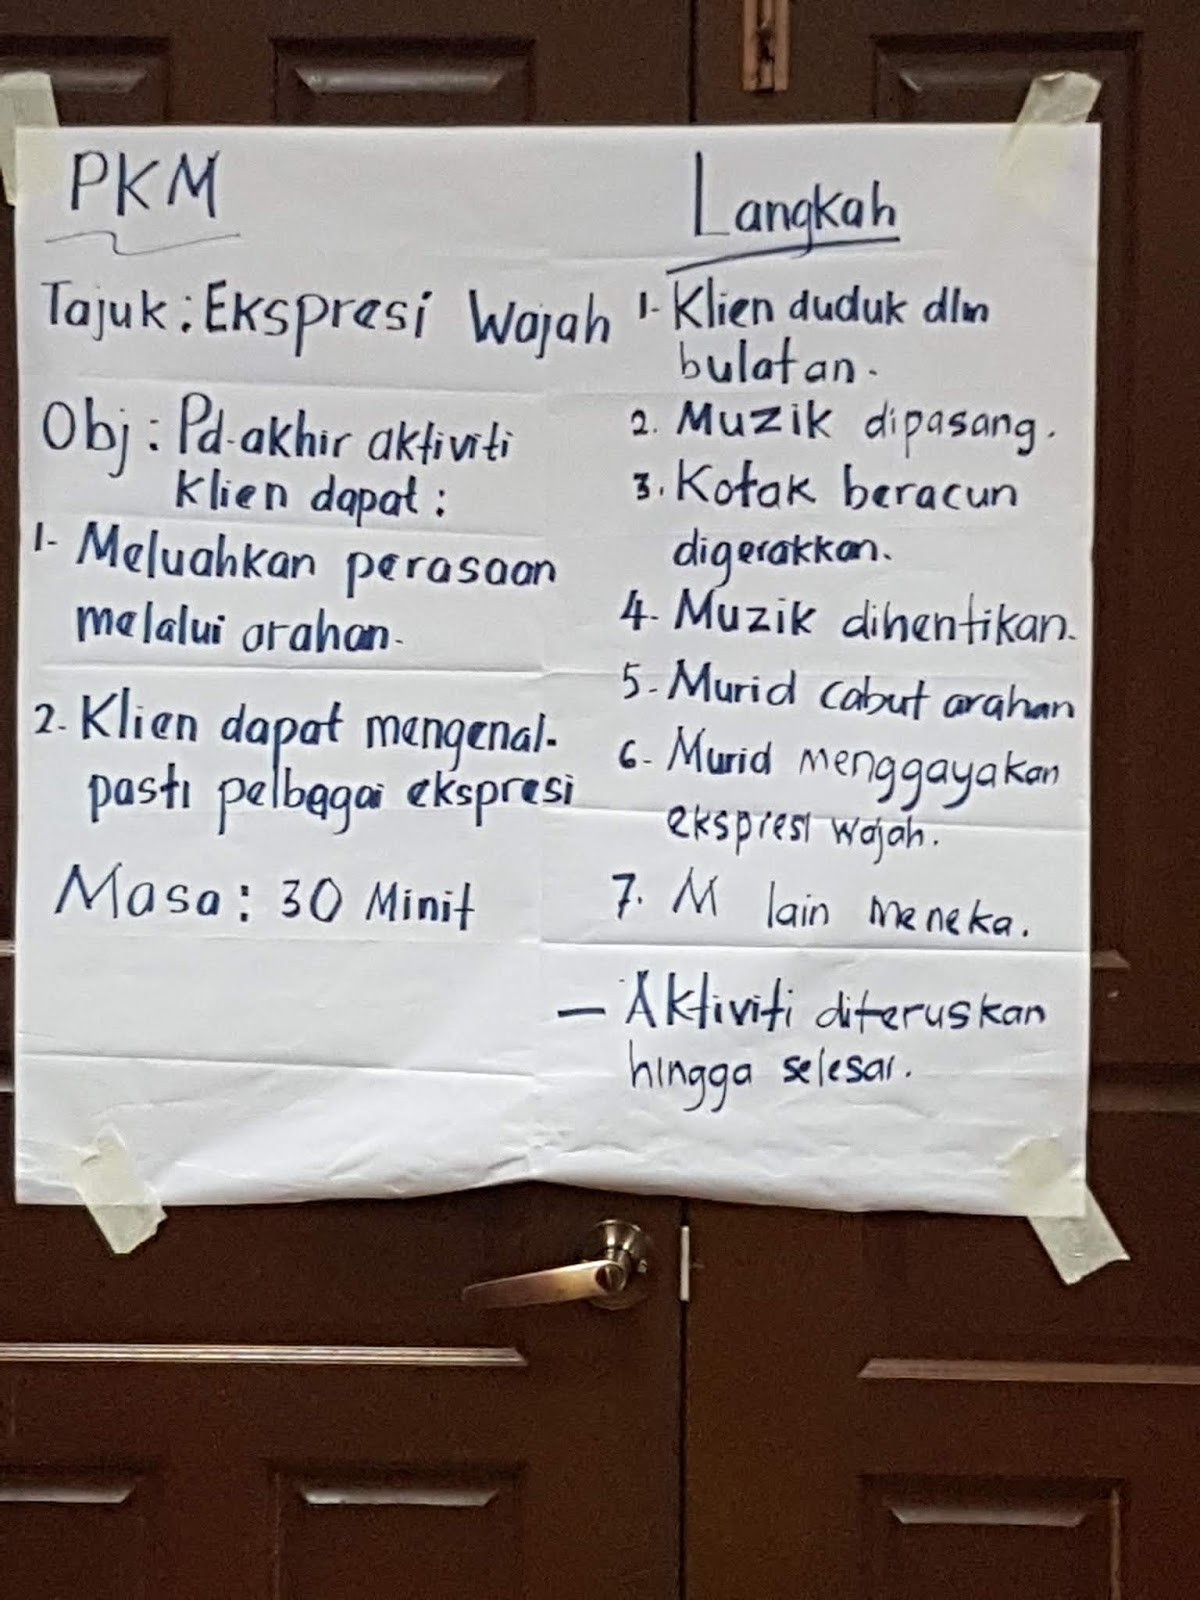 PKM
Tajuk : Ekspresi Wajah
Obj : Pd. akhir aktiviti
Klien dapat :
1- Meluahkan perasaan
melalui arahan.
2- Klien dapat mengenal-
pasti pelbagai ekspresi
Masa : 30 Minit
Langkah
1- Klien duduk dlm
bulatan.
2. Muzik dipasang.
3. Kotak beracun
digerakkan.
4- Muzik dihentikan.
5- Murid cabut arahan
6- Murid menggayakan
ekspresi wajah.
7. M lain meneka.
— Aktiviti diteruskan
hingga selesai.